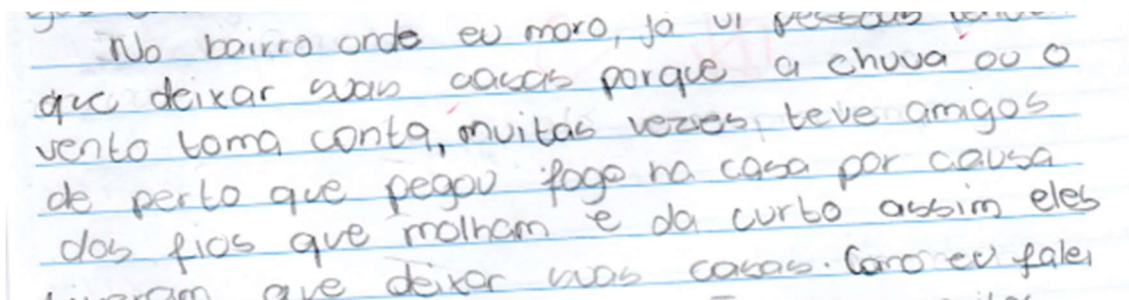 No bairro onde eu moro, já vi pessoas
que deixar suas casas porque a chuva ou o
vento toma conta, muitas vezes teve amigos
de perto que pegou fogo na casa por causa
dos fios que molham e da curto assim eles
tiveram que deixar suas casas. Como eu falei